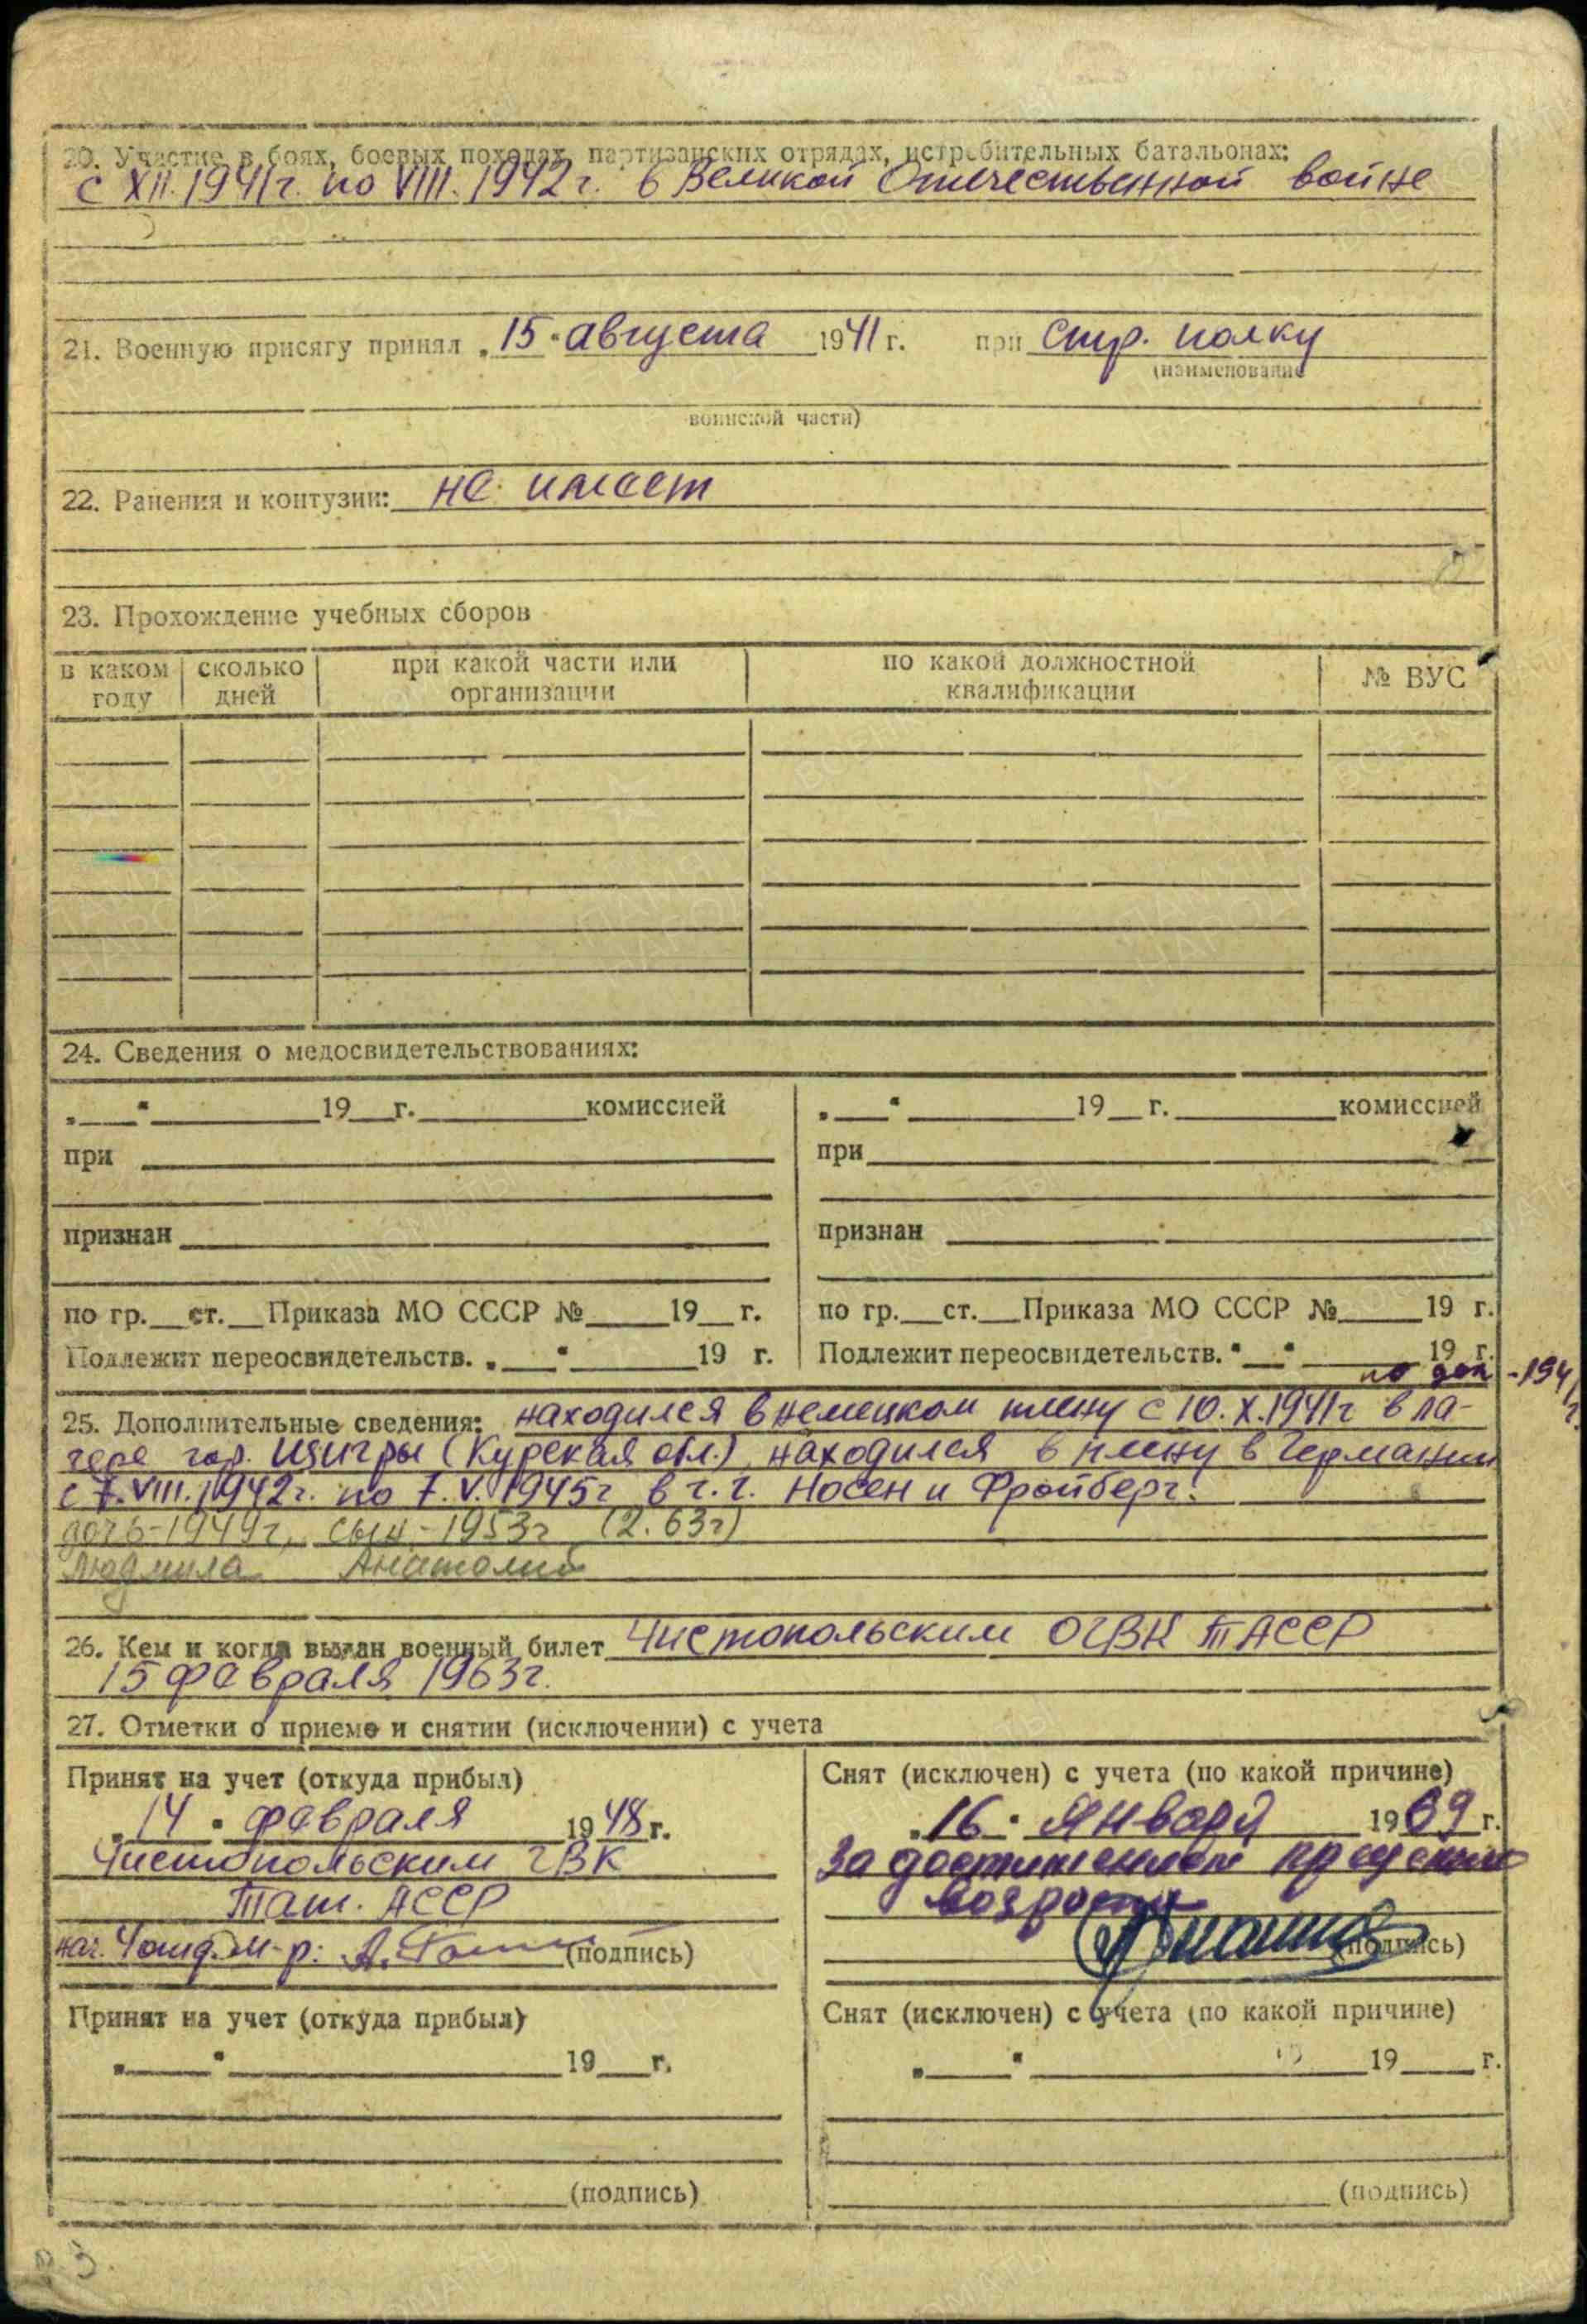 20. Участие в боях, боевых походах, партизанских отрядах, истребительных батальонах:
с XII.1941г. по VIII.1942г. в Великой Отечественной войне
21. Военную присягу принял „15“ августа 1941 г. при стр. полку
(наименование
воинской части)
22. Ранения и контузии: не имеет
23. Прохождение учебных сборов
в каком году сколько дней при какой части или организации по какой должностной квалификации № ВУС
24. Сведения о медосвидетельствованиях:
„___“ ______ 19__г. ______ комиссией „___“ ______ 19__ г. ______ комиссией
при при
признан признан
по гр.__ст.__Приказа МО СССР №____19__г. по гр.__ст.__Приказа МО СССР №____19 г.
Подлежит переосвидетельств. „___“ ______19 г. Подлежит переосвидетельств. „___“ ______19 г.
по дек -1941г.
25. Дополнительные сведения: находился в немецком плену с 10.X.1941г в ла-
гере гор. Щигры (Курская обл.), находился в плену в Германии
с 7.VIII.1942г. по 7.V.1945г в г.г. Носен и Фройберг.
дочь-1949г, сын-1953г (2.63г)
Людмила Анатолий
26. Кем и когда выдан военный билет Чистопольским ОГВК ТАССР
15 февраля 1963г.
27. Отметки о приеме и снятии (исключении) с учета
Принят на учет (откуда прибыл) Снят (исключен) с учета (по какой причине)
„14“ февраля 1948 г. „16“ января 1969 г.
Чистопольским ГВК за достижением предельного
Тат. АССР возраста
нач. м-р: А. (подпись) (подпись)
Принят на учет (откуда прибыл) Снят (исключен) с учета (по какой причине)
„___“ ______ 19__г. „___“ ______ 19__г.
(подпись) (подпись)